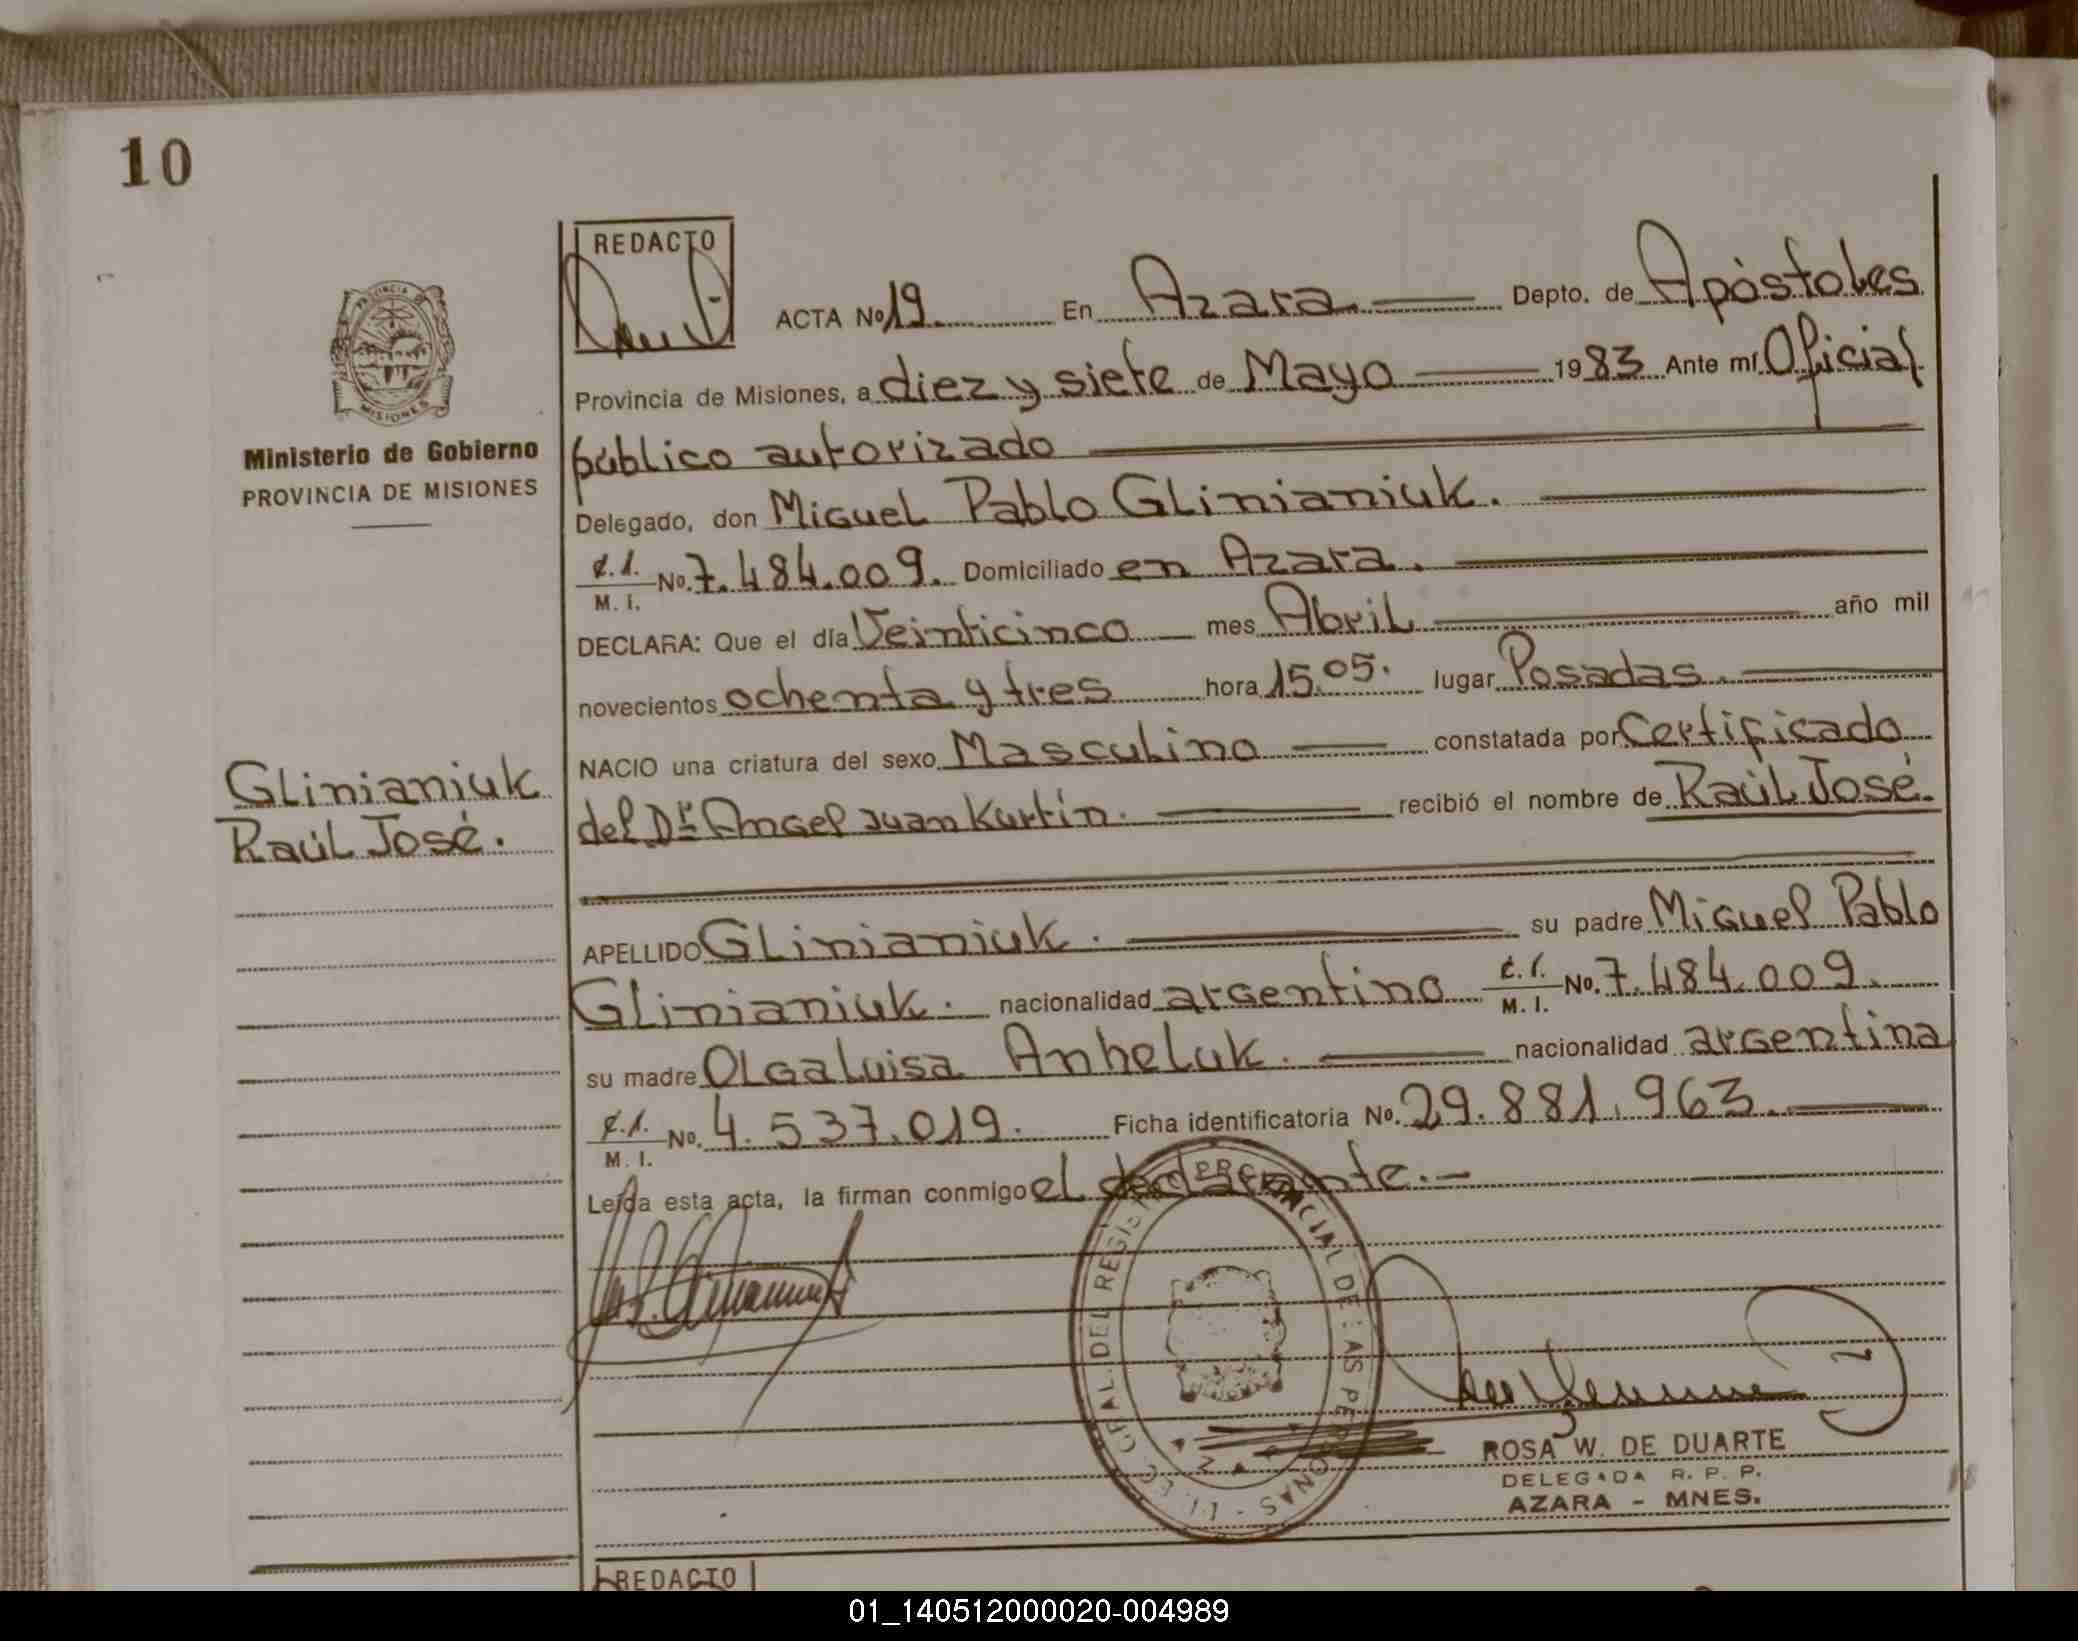 10
REDACTO
ACTA No 19. En Azara Depto. de Apóstoles
Provincia de Misiones, a diez y siete de Mayo 1983 Ante mí Oficial
público autorizado
Delegado, don Miguel Pablo Glinianiuk.
C.I. No. 7.484.009. Domiciliado en Azara.
M. I.
DECLARA: Que el día Veinticinco mes Abril año mil
novecientos ochenta y tres hora 15.05. lugar Posadas.
NACIO una criatura del sexo Masculino constatada por Certificado
del Dr Angel Juan Kurtin. recibió el nombre de Raúl José.
APELLIDO Glinianiuk. su padre Miguel Pablo
Glinianiuk. nacionalidad argentino C.I. No. 7.484.009.
M. I.
su madre Olga Luisa Anheluk. nacionalidad argentina
C.I. No. 4.537.019. Ficha identificatoria No. 29.881.963.
M. I.
Leída esta acta, la firman conmigo el declarante.-
PROVINCIA
MISIONES
Ministerio de Gobierno
PROVINCIA DE MISIONES
Glinianiuk
Raúl José.
ROSA W. DE DUARTE
DELEGADA R. P. P.
AZARA - MNES.
REDACTO
01_140512000020-004989